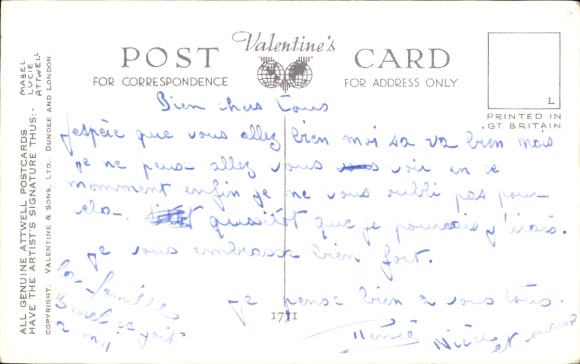 POST Valentine's CARD
FOR CORRESPONDENCE FOR ADDRESS ONLY
PRINTED IN
GT BRITAIN
L
ALL GENUINE ATTWELL POSTCARDS
HAVE THE ARTIST'S SIGNATURE THUS:-
MABEL
LUCIE
ATTWELL
COPYRIGHT. VALENTINE & SONS, LTD. DUNDEE AND LONDON.
Bien chers tous
J'espère que vous allez bien moi sa va bien mais
je ne peux allez vous voir en ce
momment enfin je ne vous oubli pas pour
cla. qussitot que je pourrais j'irais.
je vous embrasse bien fort.
je pense bien a vous tous.
1771
la famille